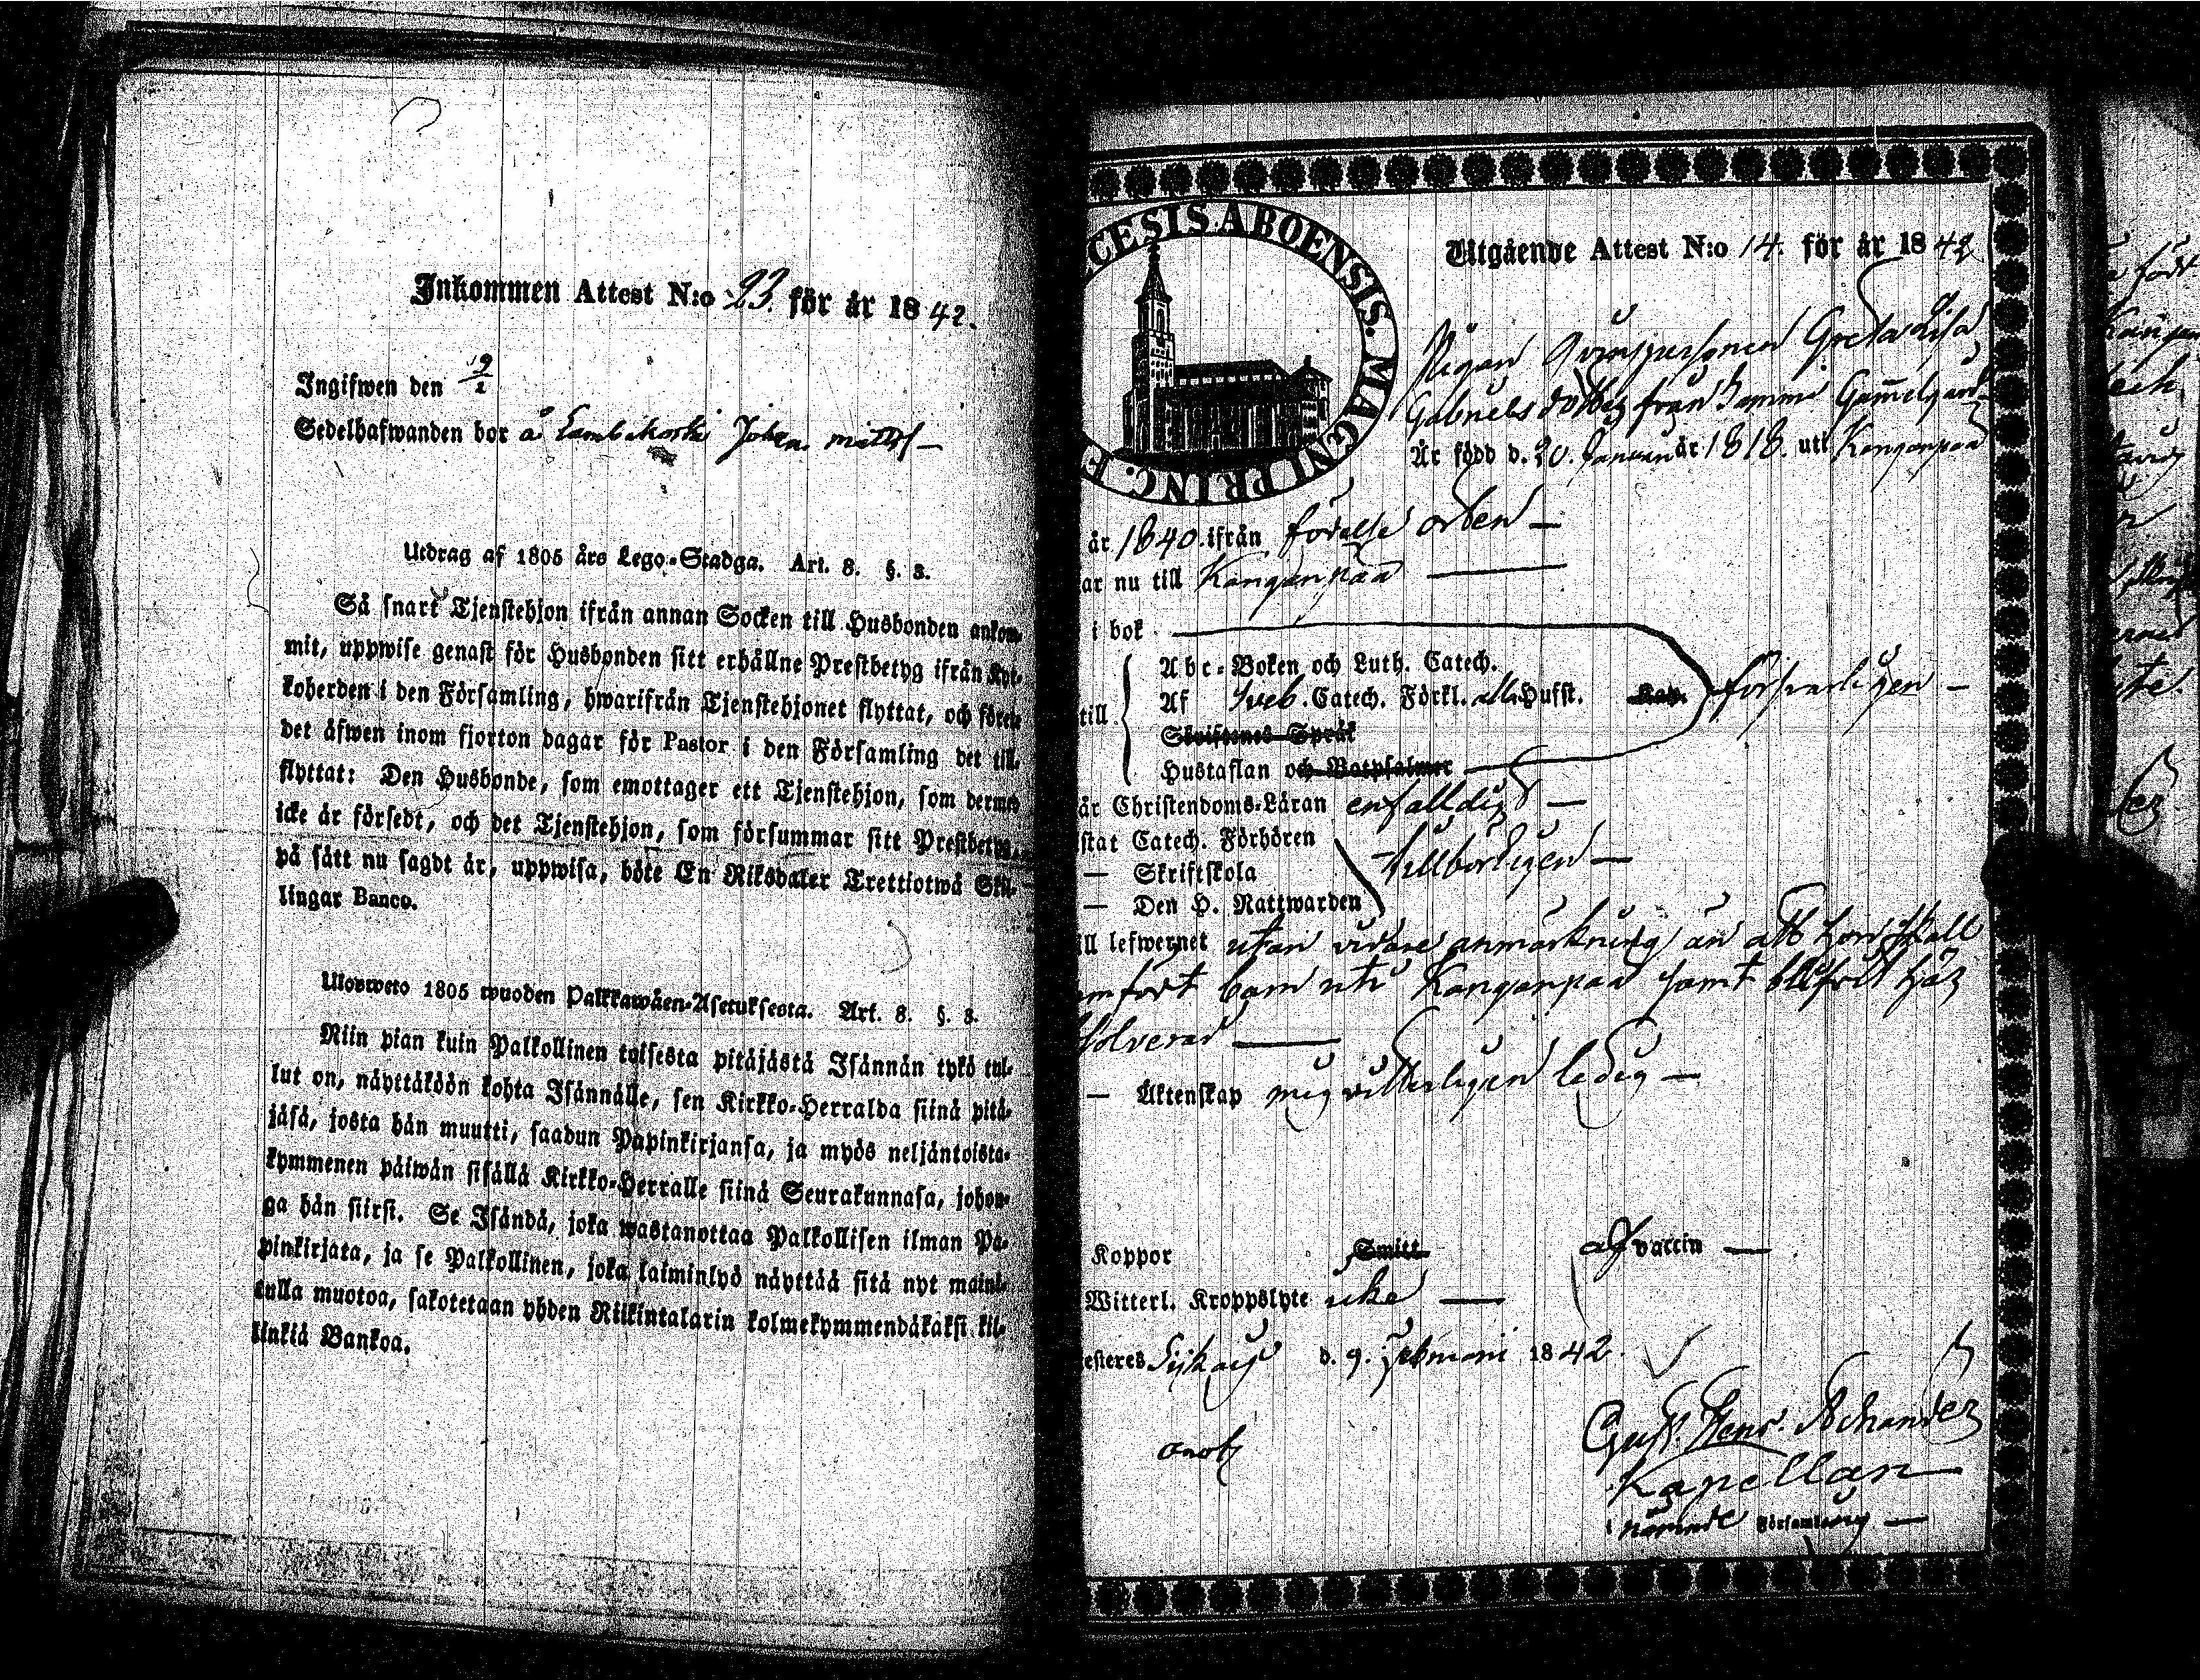 Inkommen Attest N:o 23. för år 1842.
Ingifwen den 19/2
Sedelhafwanden bor å Lambikoski Johan
Utdrag af 1805 års Lego-Stadga. Art. 8. §. 3.
Så snart Tjenstehjon ifrån annan Socken till Husbonden ankom-
mit, uppwise genast för Husbonden sitt erhållne Prestbetyg ifrån Kyr-
koherden i den Församling, hwarifrån Tjenstehjonet flyttat, och förete
det äfwen inom fjorton dagar för Pastor i den Församling det till-
flyttat: Den Husbonde, som emottager ett Tjenstehjon, som dermed
icke är försedt, och det Tjenstehjon, som försummar sitt Prestbetyg,
på sätt nu sagdt är, uppwisa, böte En Riksdaler Trettiotwå Skil-
lingar Banco.
Ulosweto 1805 wuoden Palkkawäen-Asetuksesta. Art. 8. §. 3.
Niin pian kuin Palkollinen toisesta pitäjästä Isännän tykö tul-
lut on, näyttäköön kohta Isännälle, sen Kirkko-Herralda siinä pitä-
jäsä, josta hän muutti, saadun Papinkirjansa, ja myös neljäntoista-
kymmenen päiwän sisällä Kirkko-Herralle siinä Seurakunnasa, johon-
ga hän siirsi. Se Isändä, joka wastanottaa Palkollisen ilman Pa-
pinkirjata, ja se Palkollinen, joka laiminlyö näyttää sitä nyt maini-
tulla muotoa, sakotetaan yhden Riikintalarin kolmekymmendäkaksi kil-
linkiä Bankoa.
CESIS ABOENSIS. MAGNI PRINC. F
Utgående Attest N:o 14. för år 1842
Pigan Qvinspersonen Greta Lisa
Gabrielsdotter från Gammelgård
Är född d. 20. Januari år 1818. uti Kanganpää
år 1840. ifrån födelse orten —
ar nu till Kanganpää —
i bok
Abc-Boken och Luth. Catech.
till Af Sveb. Catech. Förkl. alla Hufst. Kap. försvarligen —
Skriftenes Språk
Hustaflan och Botpsalmer
är Christendoms-Läran enfalldig —
stat Catech. Förhören
— Skriftskola tillbörligen —
— Den H. Nattwarden
ill lefwernet utan vidare anmärkning än att hon skall
amfört barn uti Kanganpää samt blifvit här
solverad —
— Äktenskap mig vitterligen ledig —
Koppor Smitt af vaccin —
Witterl. Kroppslyte icke —
esteres d. 9. Februari 1842.
Gust. Henr. Achander
Kapellan
nämnde Församling —